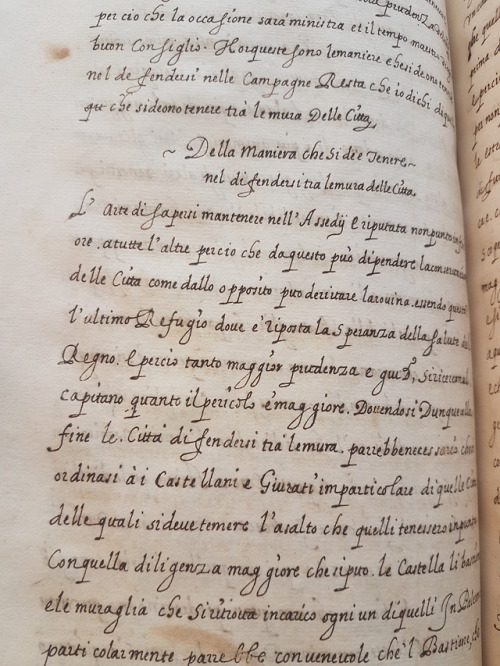 prudenza
per cio che la occasione sara' ministra et il tempo maestro
buon Consiglio. Hor queste sono le maniere che si deono tene
nel defendersi nelle Campagne Resta che io dichi di quel
que che si deono tenere trà le mura Delle Citta.
~ Della Maniera che si dee Tenere ~
nel difendersi tra le mura delle Citta.
L' Arte di sapersi mantenere nell'Assedij è riputata non punto inf
ore. a tutte l'altre percio che da questo può dipendere la conservation
delle Citta come dallo opposito puo derivare la rovina. essendo questi
l'ultimo Refugio dove e' riposta la speranza della salute del
Regno. E percio tanto maggior prudenza e si ricerca nel
Capitano quanto il pericolo è maggiore. Dovendosi Dunque alla
fine le. Città difendersi tra le mura. parrebbe necessario che
ordinasi à i Castellani e Giurati imparticolare di quelle Citta
delle quali si deve temere l'asalto che quelli tenessero in punto
Con quella diligenza maggiore che si puo. le Castella li bastioni
e le muraglia che si ritrova incarico ogni un di quelli In
particolarmente parrebbe convenevole che 'l Bastione, che